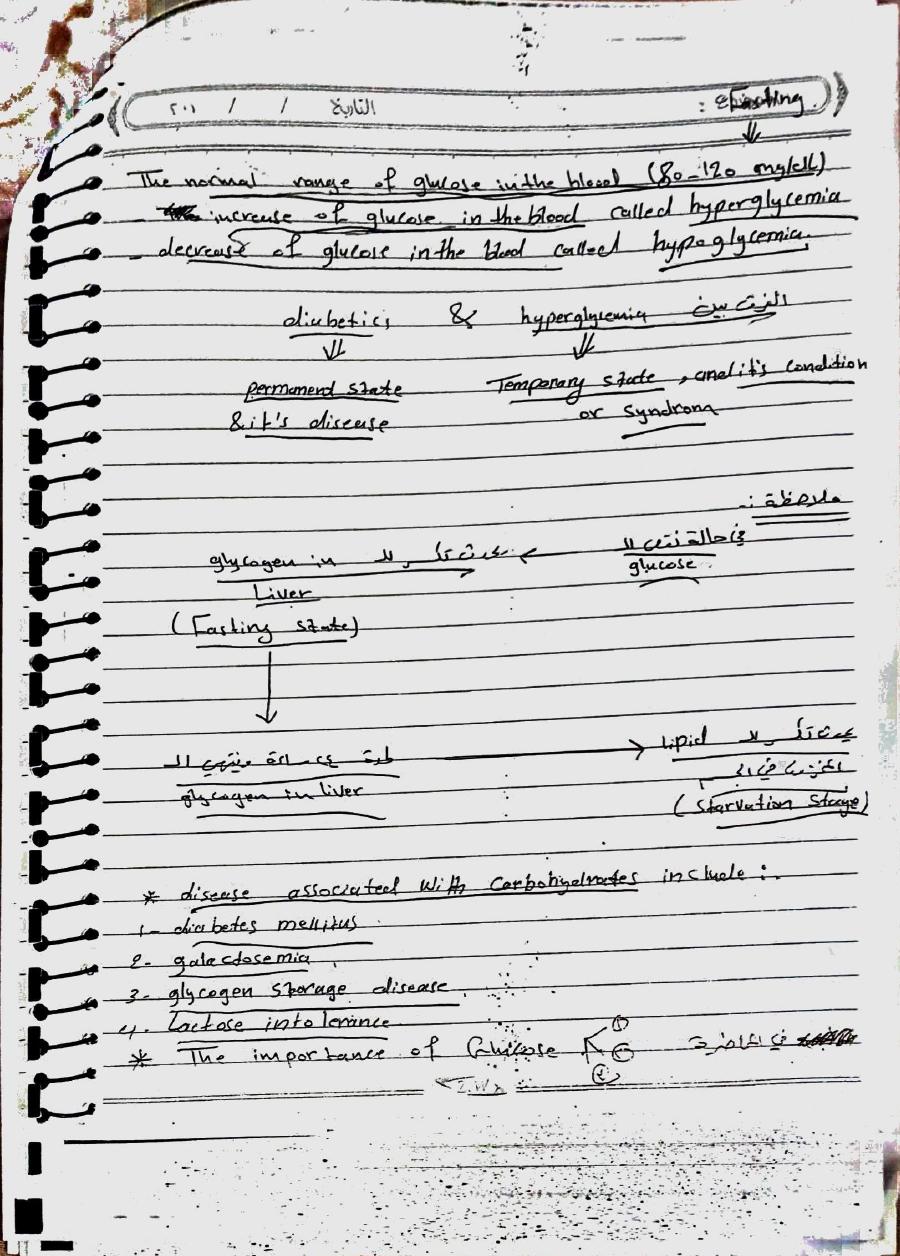 التاريخ / / ٢٠١
Fasting
The normal range of glucose in the blood (80-120 mg/dL)
- increase of glucose in the blood called hyperglycemia
- decrease of glucose in the blood called hypoglycemia.
الفرق بين hyperglycemia & diabetics
Temporary state, and it's condition or syndrom
permanend state & it's disease
ملاحظة :-
في حالة نقص الـ glucose
يحدث تكسر الـ glycogen in Liver
(Fasting state)
ساعة وينتهي الـ glycogen in liver
يحدث تكسر الـ Lipid
(Starvation Stage)
* disease associated with Carbohydrates include :.
1- diabetes mellitus
2- galactosemia
3- glycogen storage disease
4. Lactose intolerance
* The importance of Glucose ① ② في المحاضرة